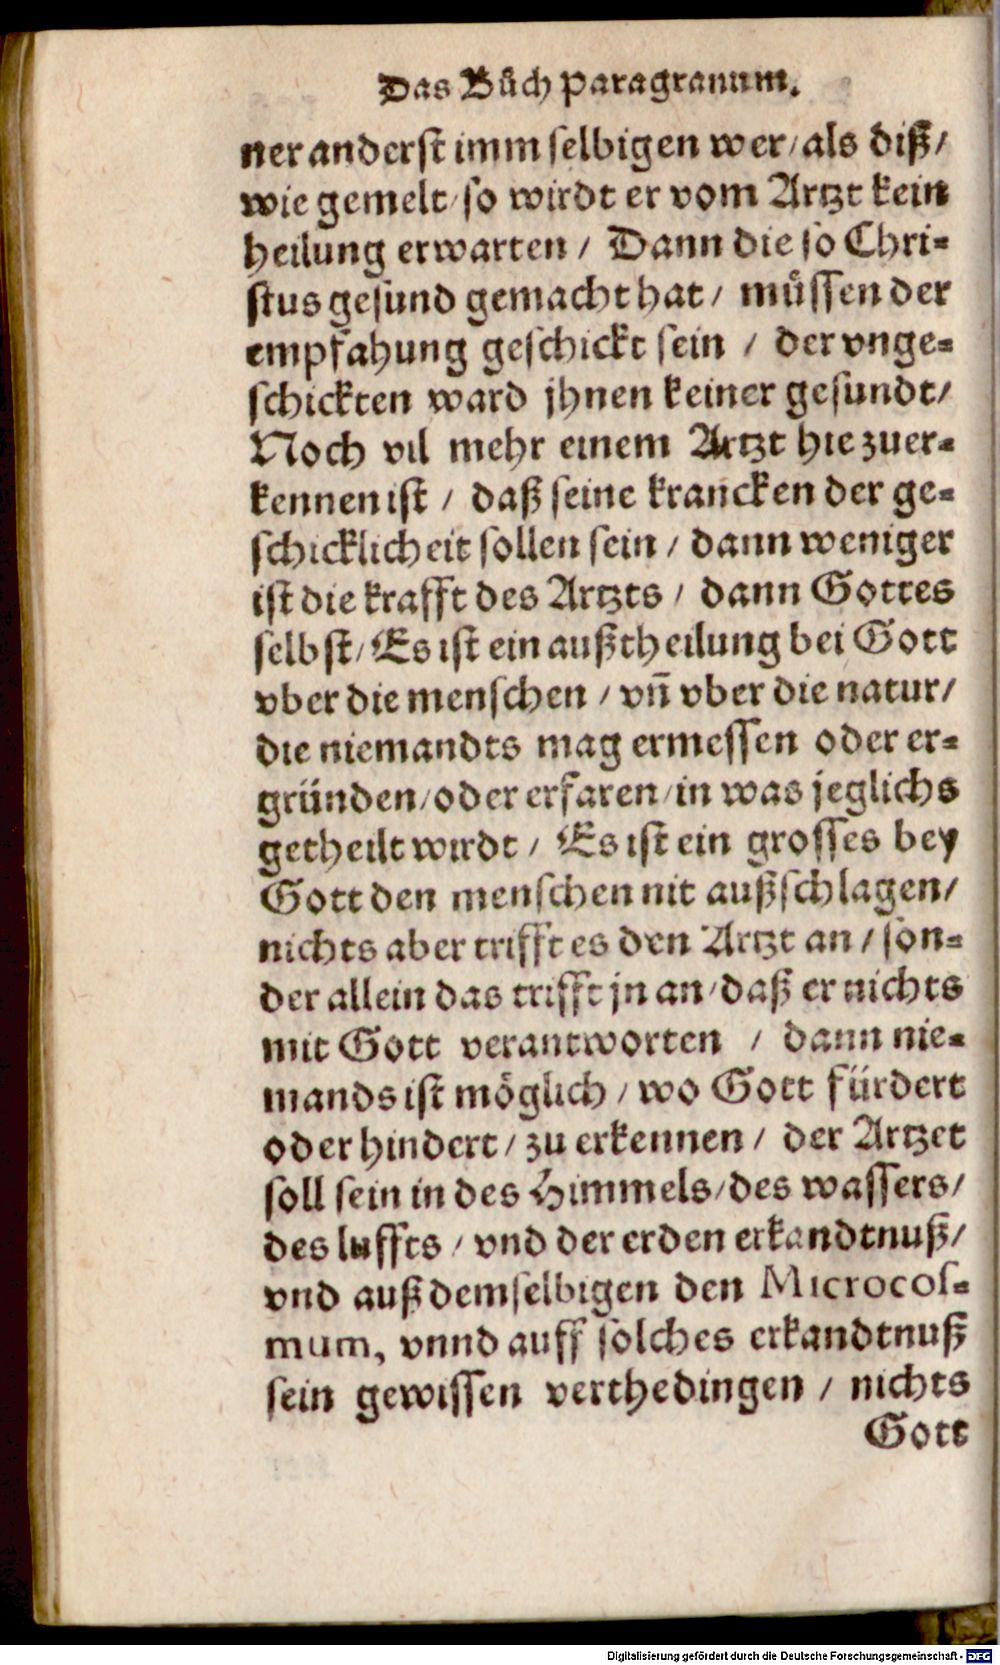 Das Bůch Paragranum.
ner anderst imm selbigen wer/ als diß/
wie gemelt/ so wirdt er vom Artzt kein
heilung erwarten / Dann die so Chri-
stus gesund gemacht hat / müssen der
empfahung geschickt sein / der vnge-
schickten ward jhnen keiner gesundt/
Noch vil mehr einem Artzt hie zuer-
kennen ist / daß seine krancken der ge-
schicklicheit sollen sein / dann weniger
ist die krafft des Artzts / dann Gottes
selbst/ Es ist ein außtheilung bei Gott
vber die menschen / vñ vber die natur/
die niemandts mag ermessen oder er-
gründen/ oder erfaren/ in was jeglichs
getheilt wirdt / Es ist ein grosses bey
Gott den menschen nit außschlagen/
nichts aber trifft es den Artzt an / son-
der allein das trifft jn an/ daß er nichts
mit Gott verantworten / dann nie-
mands ist möglich / wo Gott fürdert
oder hindert/ zu erkennen / der Artzet
soll sein in des Himmels/ des wassers/
des luffts / vnd der erden erkandtnuß/
vnd auß demselbigen den Microcos-
mum, vnnd auff solches erkandtnuß
sein gewissen verthedingen / nichts
Gott
Digitalisierung gefördert durch die Deutsche Forschungsgemeinschaft - DFG